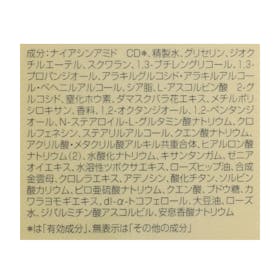 成分：ナイアシンアミド CD*、精製水、グリセリン、ジオク
チルエーテル、スクワラン、1,3-ブチレングリコール、1,3-
プロパンジオール、アラキルグルコシド・アラキルアルコー
ル・ベヘニルアルコール、シア脂、L-アスコルビン酸 2-グ
ルコシド、窒化ホウ素、ダマスクバラ花エキス、メチルポリ
シロキサン、香料、1,2-オクタンジオール、1,2-ペンタンジ
オール、N-ステアロイル-L-グルタミン酸ナトリウム、ク
ロルフェネシン、ステアリルアルコール、クエン酸ナトリウム、
アクリル酸・メタクリル酸アルキル共重合体、ヒアルロン酸
ナトリウム(2)、水酸化ナトリウム、キサンタンガム、ゼニア
オイエキス、水溶性ツボクサエキス、ローズヒップ油、合成
金雲母、クロレラエキス、アデノシン、酸化チタン、ソルビン
酸カリウム、ピロ亜硫酸ナトリウム、クエン酸、ブドウ糖、カ
ワラヨモギエキス、dl-α-トコフェロール、大豆油、ローズ
水、ジパルミチン酸アスコルビル、安息香酸ナトリウム
*は「有効成分」、無表示は「その他の成分」